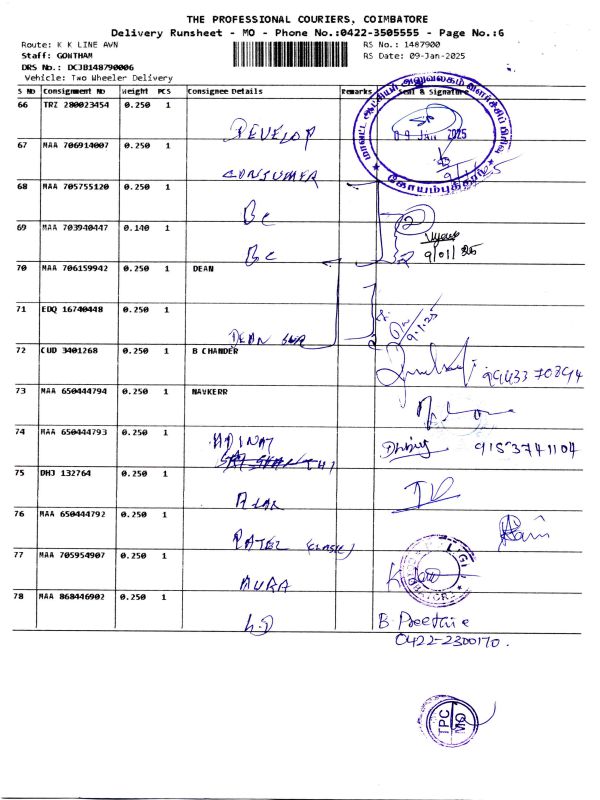 THE PROFESSIONAL COURIERS, COIMBATORE
Delivery Runsheet - MO - Phone No.:0422-3505555 - Page No.:6
Route: K K LINE AVN
RS No.: 1487900
Staff: GOWTHAM
RS Date: 09-Jan-2025
DRS No.: DCJB148790006
Vehicle: Two Wheeler Delivery
S No Consignment No Weight PCS Consignee Details Remarks Seal & Signature
66 TRI 280023454 0.250 1
DEVELOP
09 JAN 2025
மாவட்ட ஆட்சியர் அலுவலகம்
கோயம்புத்தூர்
67 MAA 706914007 0.250 1
CONSUMER
9/1/25
68 MAA 705755120 0.250 1
BC
2
69 MAA 703940447 0.140 1
BC
9/01/25
70 MAA 706159942 0.250 1 DEAN
71 EDQ 16740448 0.250 1
DEAN
9.1.25
72 CUD 3401268 0.250 1 B CHANDER
99433 70894
73 MAA 650444794 0.250 1 NAVKERR
74 MAA 650444793 0.250 1
9153741104
75 DHJ 132764 0.250 1
76 MAA 650444792 0.250 1
PATEL (CLASIC)
77 MAA 705954907 0.250 1
MURA
78 MAA 868446902 0.250 1
B. Preethi
0422-2300170.
TPC MO